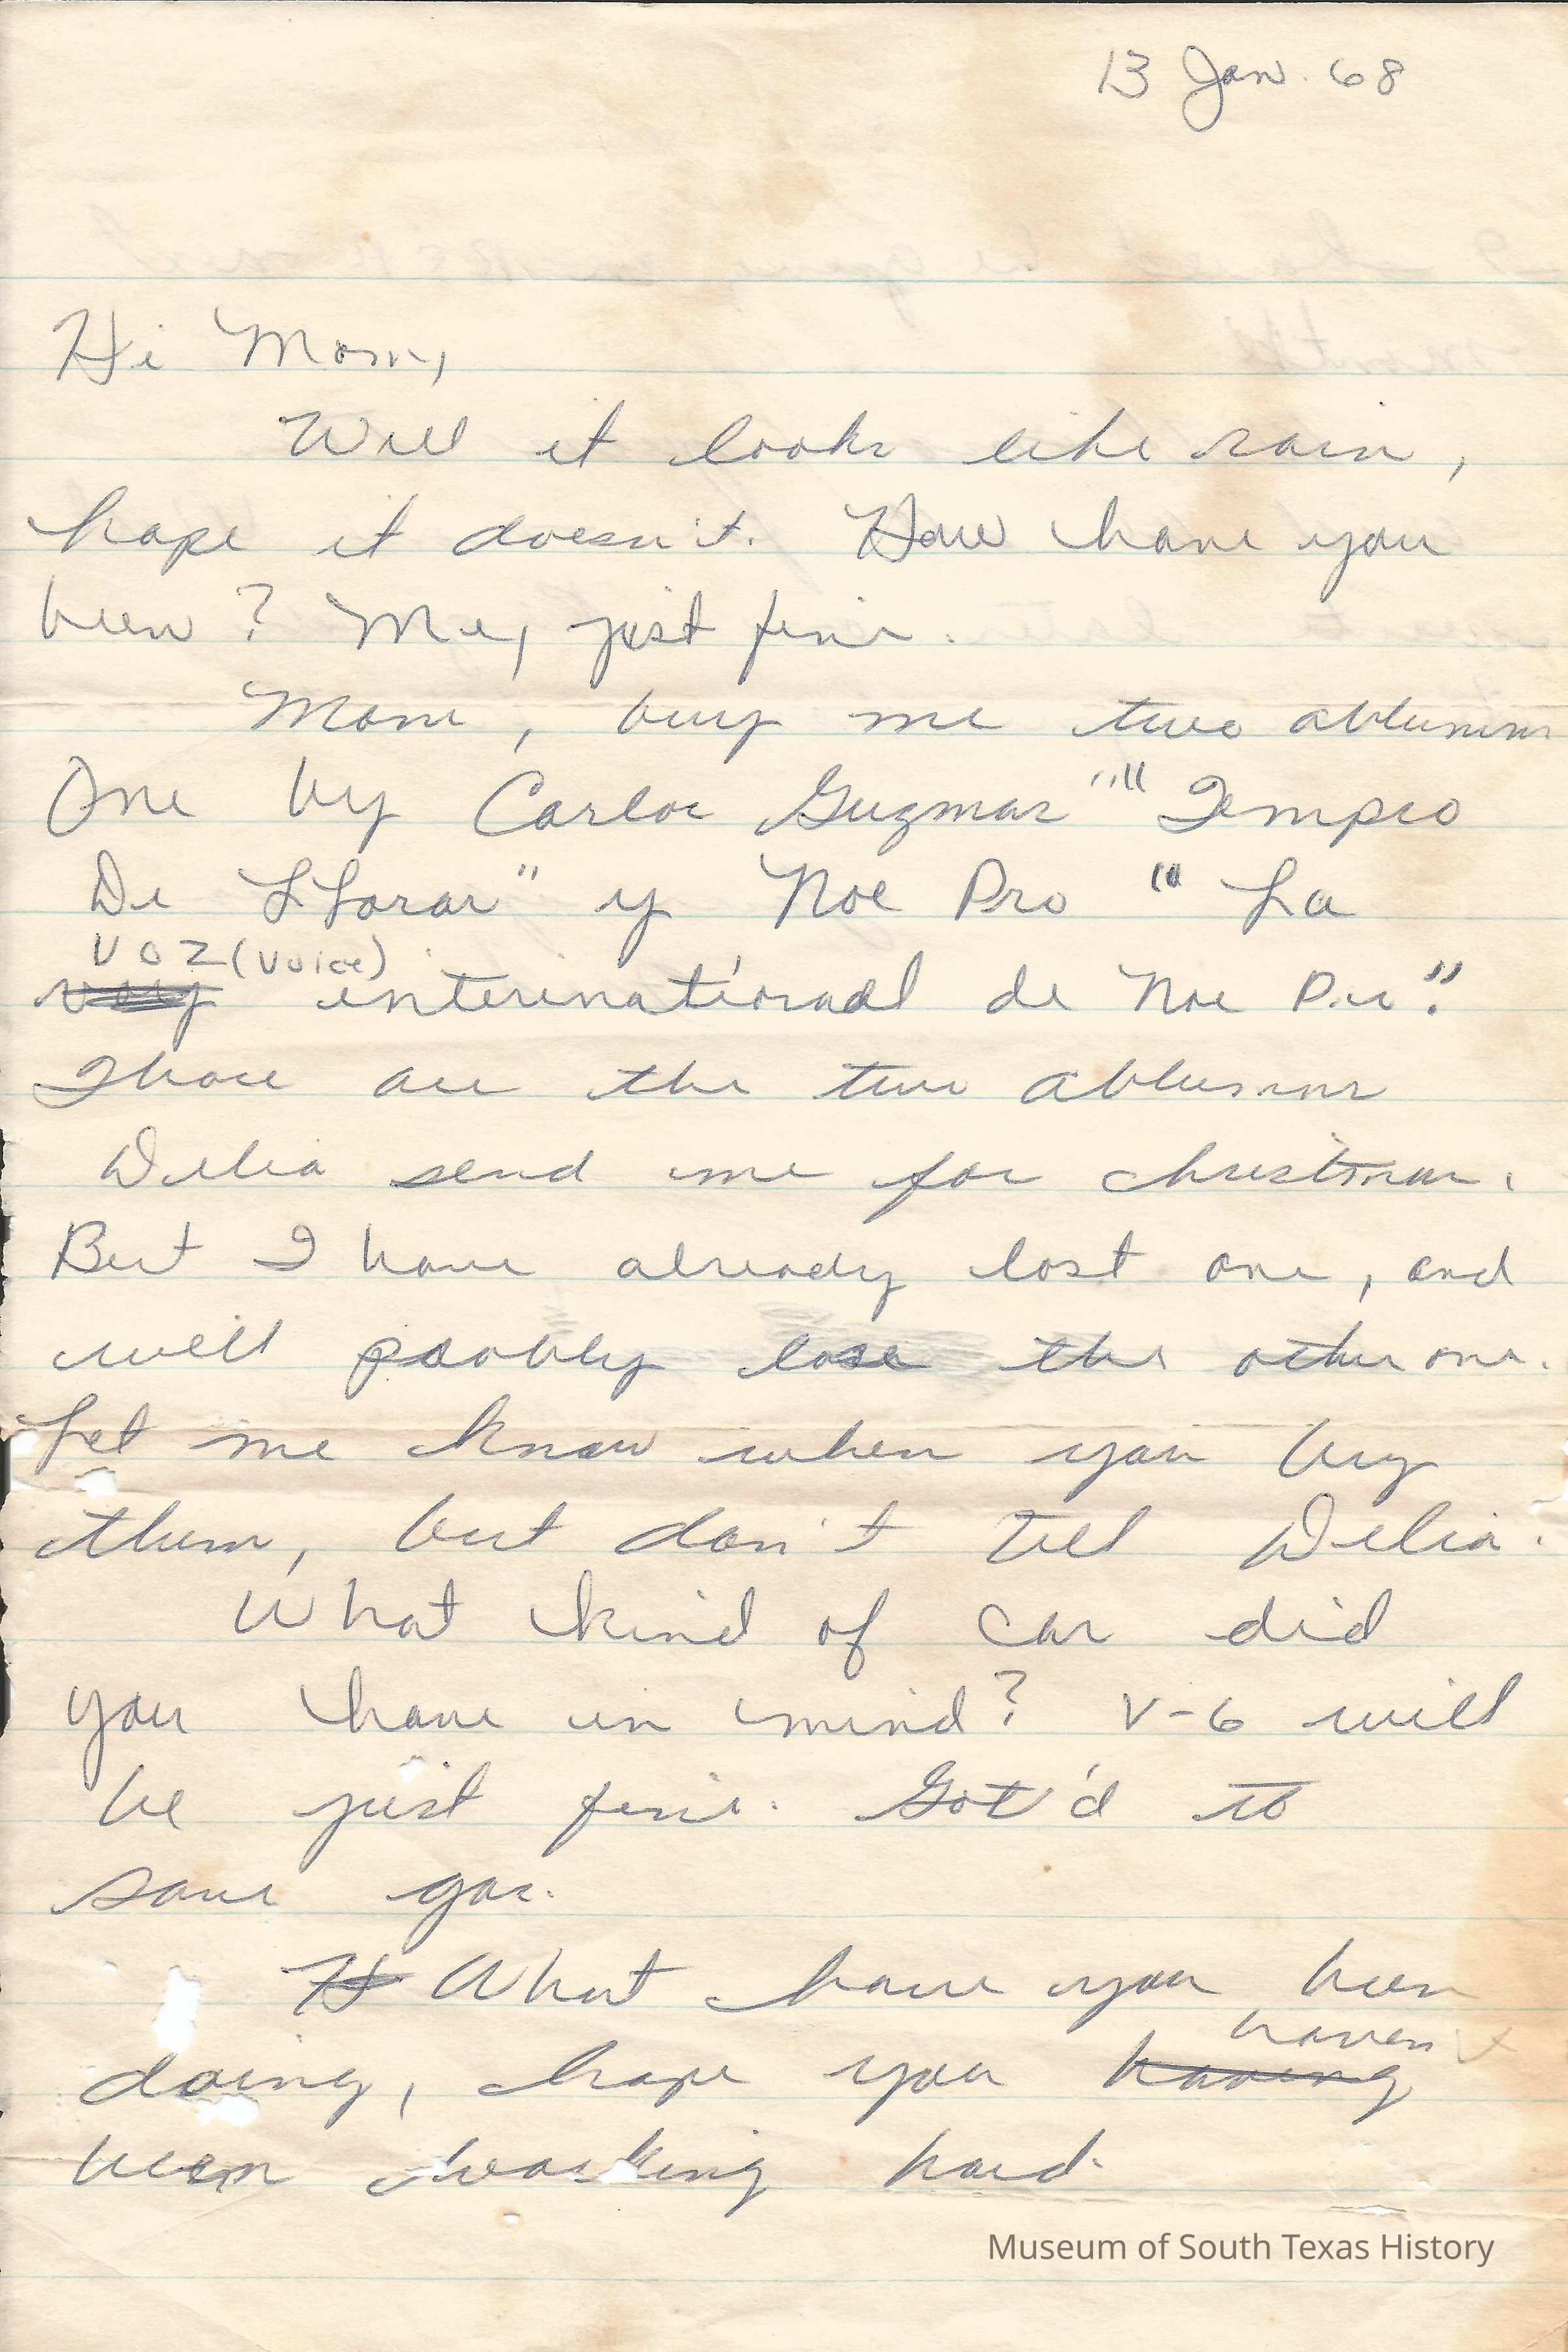 13 Jan. 68
Hi Mom,
Well it looks like rain,
hope it doesn't. How have you
been? Me, just fine.
Mom, buy me two ablumns
One by Carlos Guzman "" Tempro
De LLorar" y Noe Pro "" La
voz (voice)
very internátional de Noe Pro".
Those are the two ablumns
Delia send me for christmas.
But I have already lost one, and
will proably lose the other one.
Let me know when you buy
them, but don't tell Delia.
What kind of car did
you have in mind? V-6 will
be just fine. Got'd to
save gas.
H What have you been
haven't
doing, hope you having
been working hard.
Museum of South Texas History